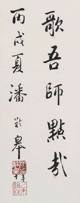 歌吾師點哉
丙戌夏潘齡皋